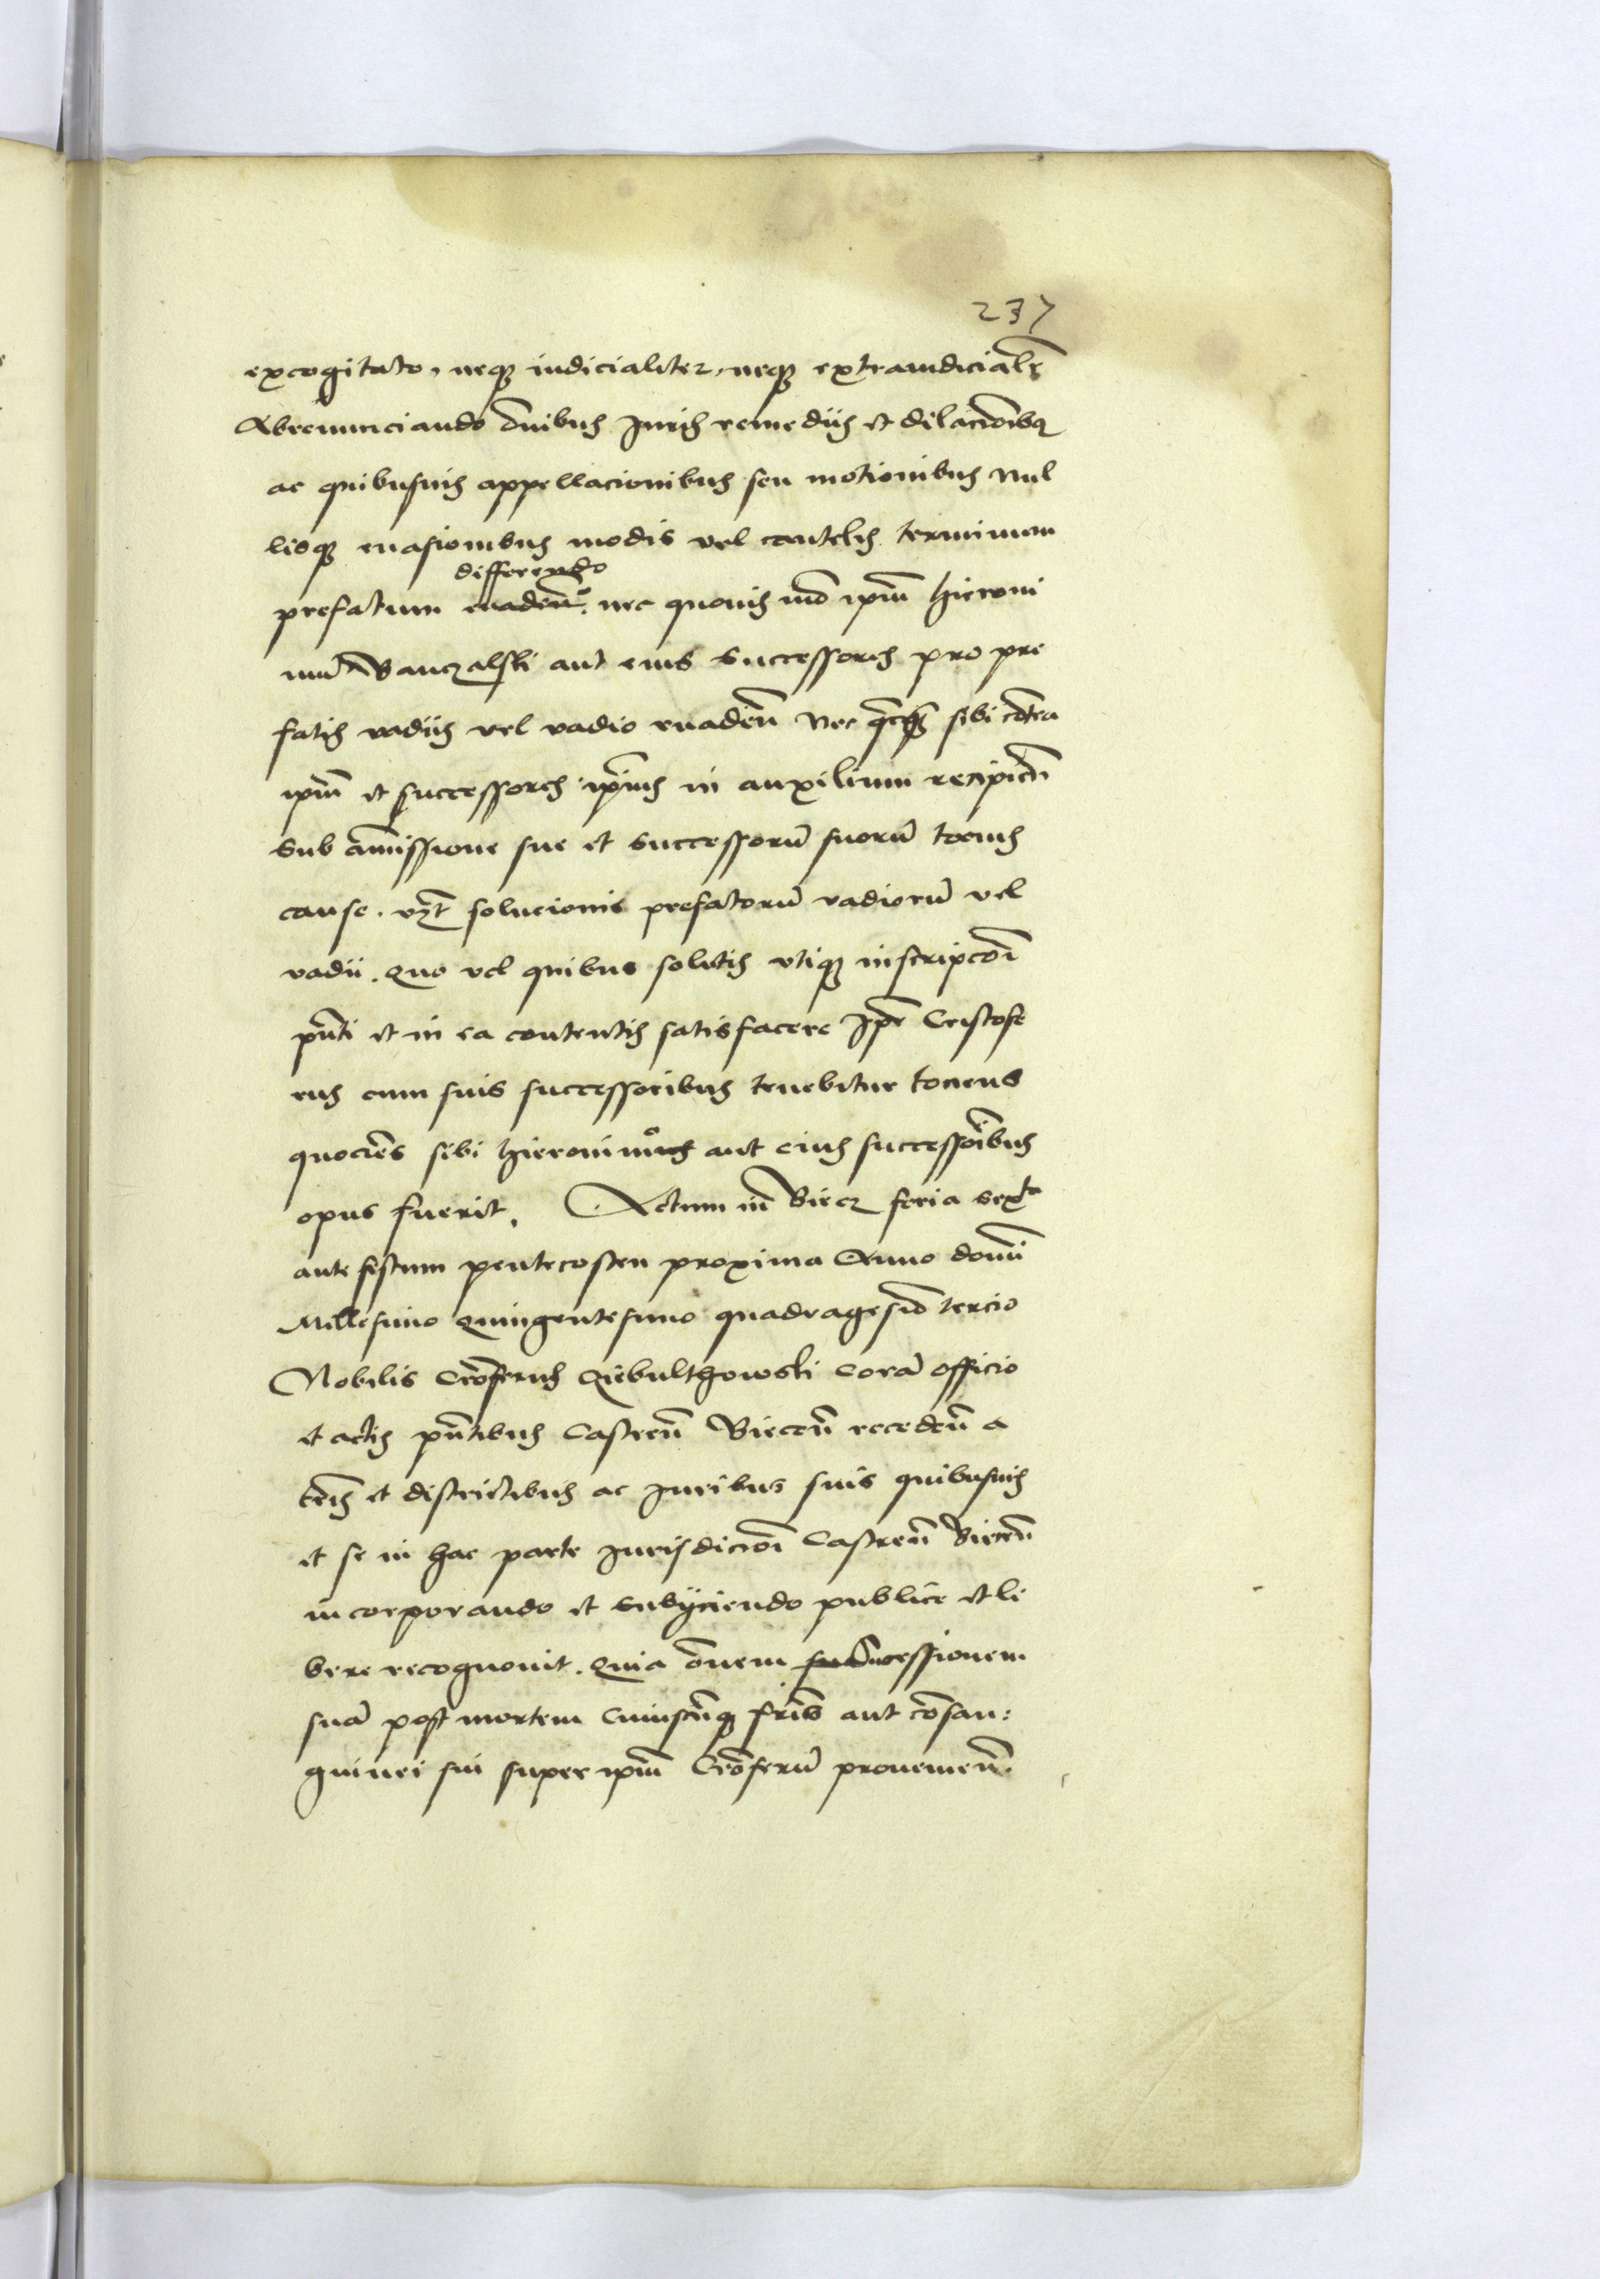 237
excogitato, neq iudicialiter, neq extraiudicialr
Abrenunciando oībus Iuris remediis et dilacionibus
ac quibusuis appellacionibus seu motionibus nul
lisq euasionibus modis vel cautelis terminum
differendo
prefatum euadeñ. nec quouis mō ipm̄ Hieroni
mū Banczalski aut eius Successores pro pre
fatis vadiis vel vadio euadeñ nec sibi contra
ipm̄ et successores ipius in auxilium recipieñ
Sub amissione sue et Successorū suorū tocius
cause. vzt̄ solucionis prefatorū vadiorū vel
vadii. Quo vel quibus solutis vtiq inscripcōi
pn̄ti et in ea contentis satisfacere Ipē Cristofe
rus cum suis successoribus tenebitur tociens
quociēs sibi Hieronimo aut eius successoribus
opus fuerit. Actum in Biecz feria sexta
ante festum pentecosten proxima Anno domī
Millesimo Quingentesimo quadragesiō tercio
Nobilis Crōferus Giebulthowski Corā officio
et actis pn̄tibus Castreñ Bieceñ recedeñ a
terris et districtibus ac Iuribus suis quibusuis
et se in hac parte Iurisdicioī Castreñ Bieceñ
incorporando et Subijciendo publice et li
bere recognouit. Quia ōnem successionem
suā post mortem Cuiuscūq frīs aut cōsan:
guinei sui super ipm̄ Crōferū proueнieñ.